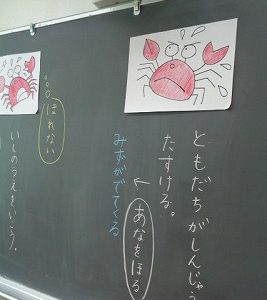 ともだちがしんじゃう
たすける。
あなをほる
みずがでてくる
ほれない
いしのうえをいこう。